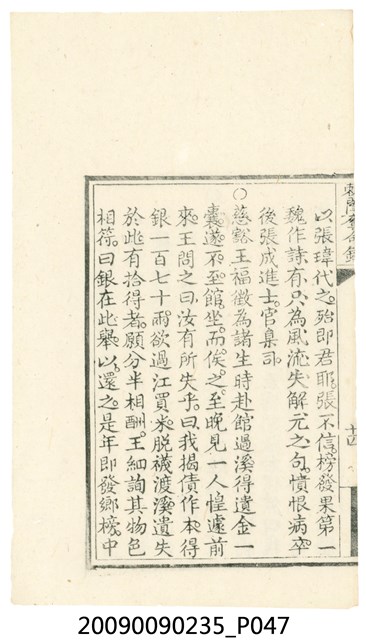 以張瑋代之。殆即君耶。張不信。榜發果第一
魏作詩有只為風流失解元之句。憤恨病卒。
後張成進士。官臬司。
○慈谿王福徵為諸生時。赴館過溪。得遺金一
囊。遂不至館。坐而俟之。至晚見一人惶遽前
來。王問之曰。汝有所失乎。曰我揭債作本。得
銀一百七十兩。欲過江買米。脫襪渡溪。遺失
於此。有拾得者。願分半相酬。王細詢其物色
相符。曰銀在此。舉以還之。是年即發鄉榜。中
十四
20090090235_P047